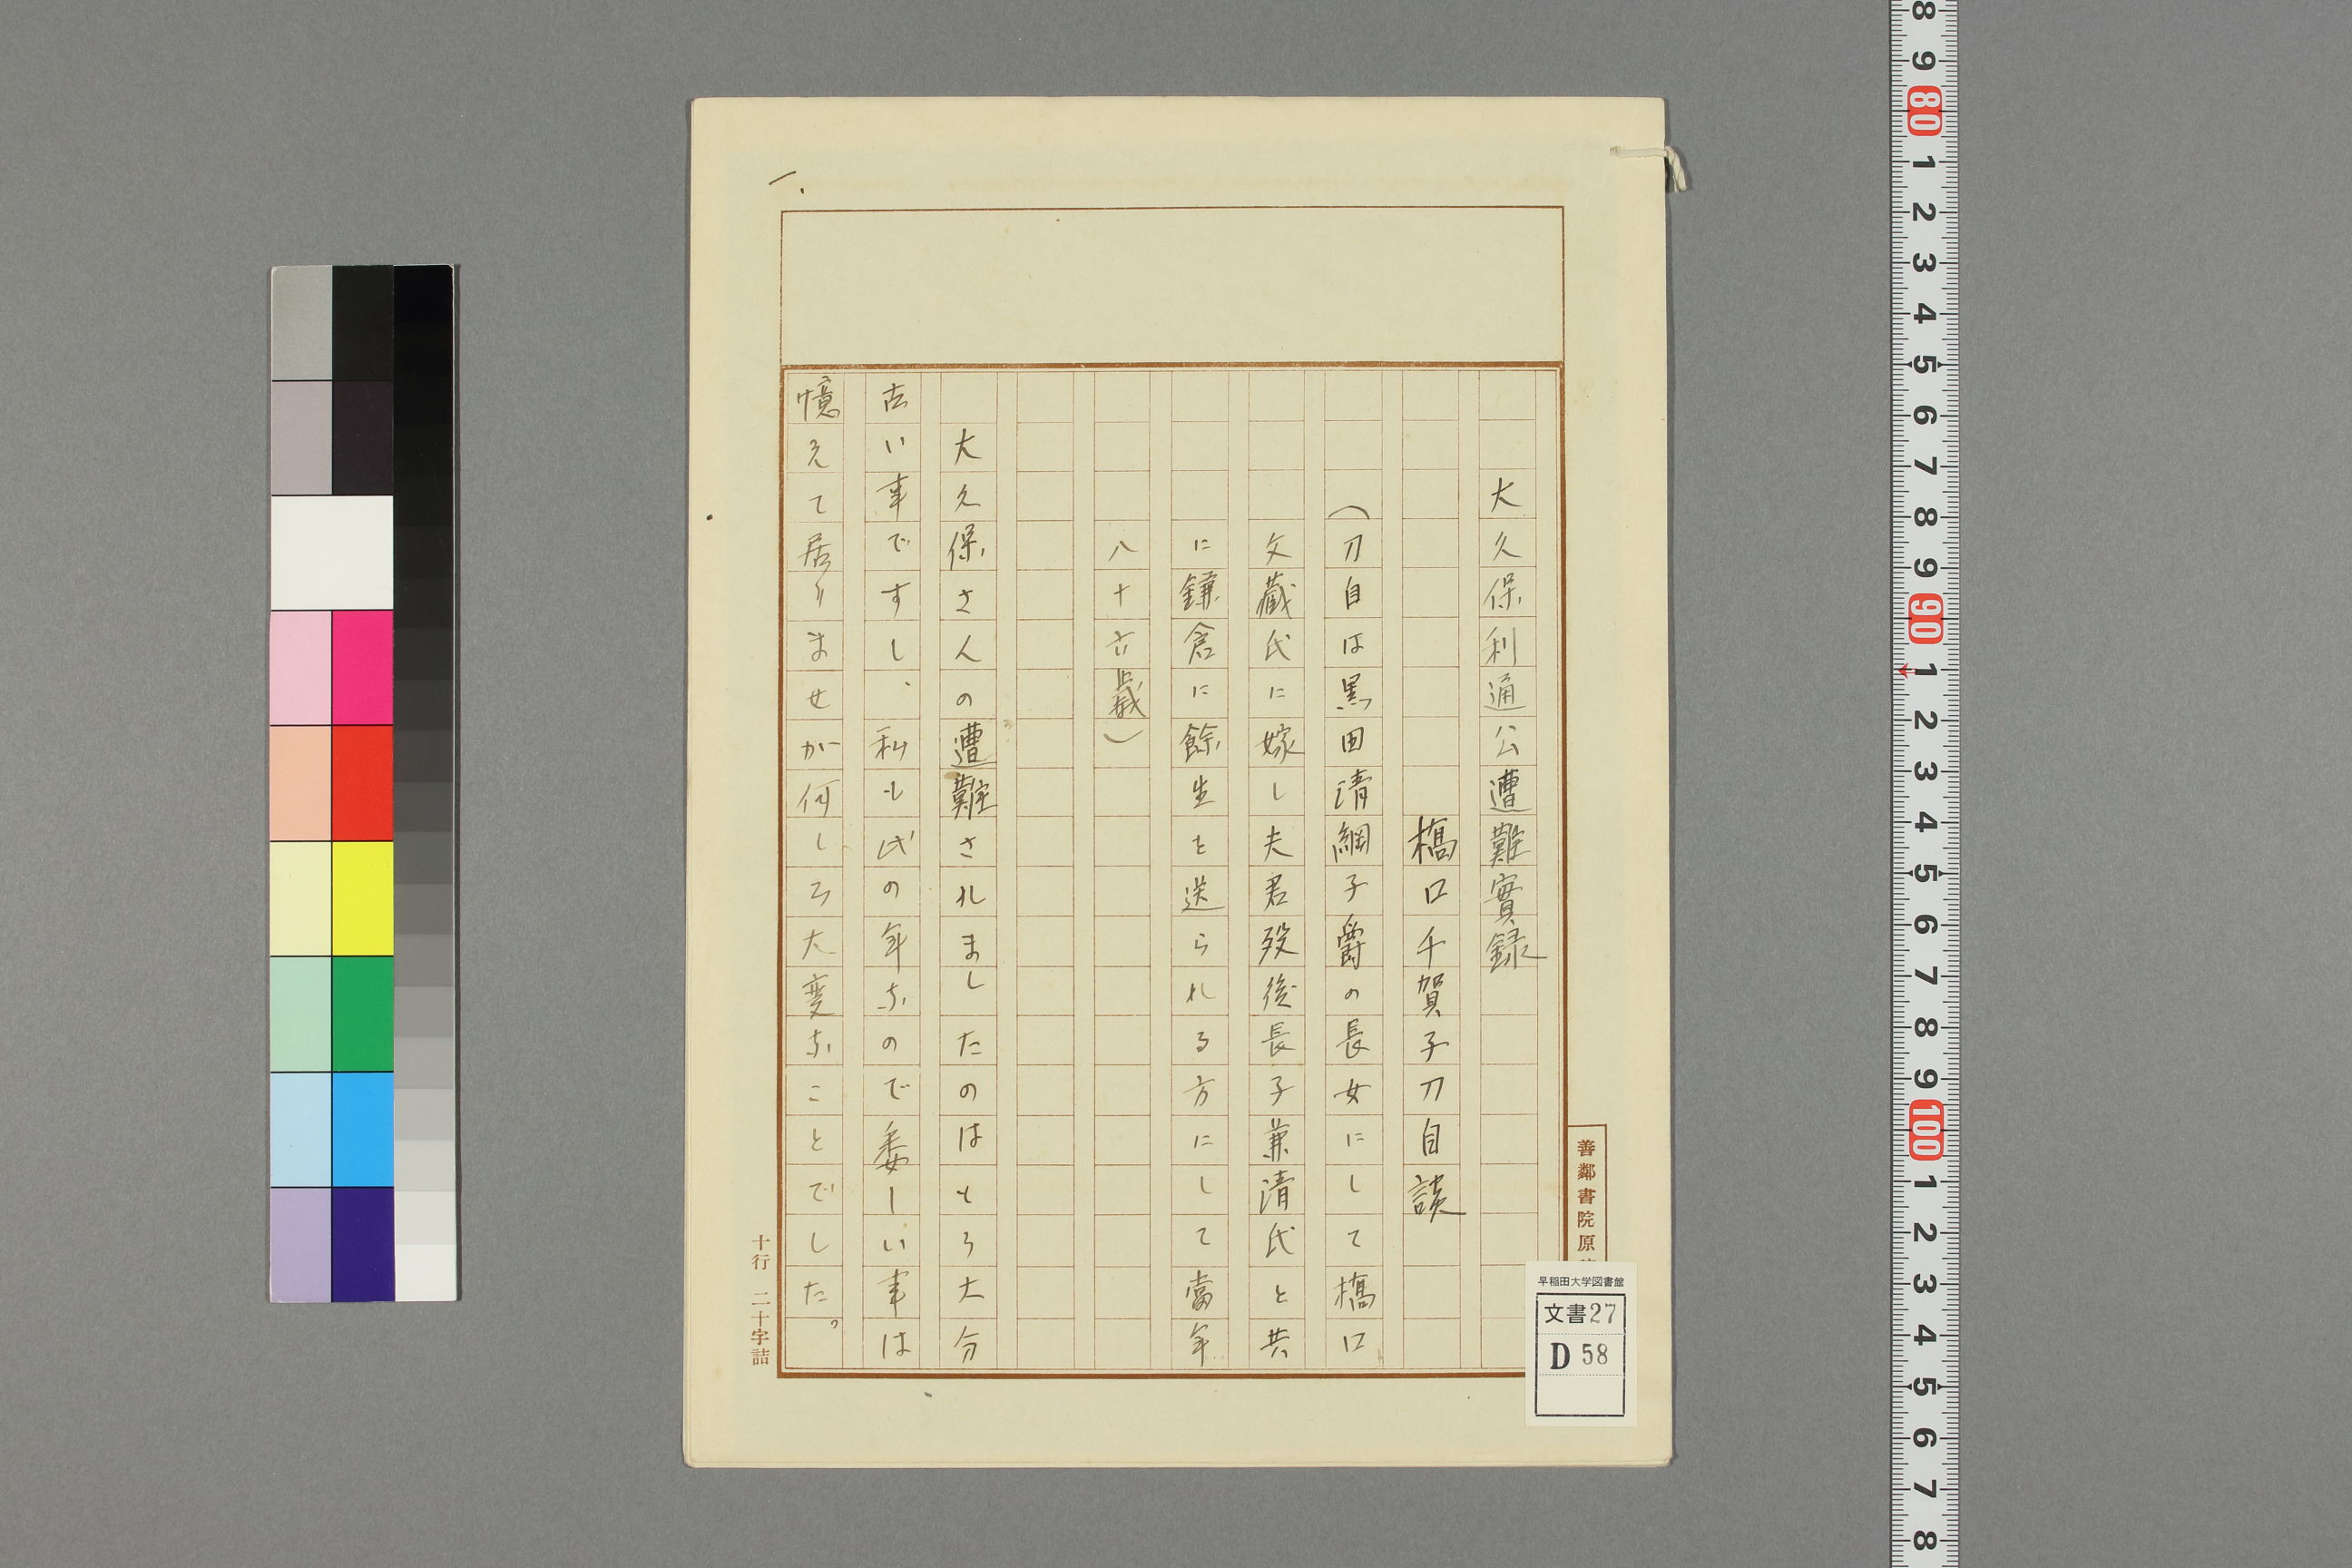 一.
大久保利通公遭難實録
橋口千賀子刀自談
（刀自は黒田清綱子爵の長女にして橋口
文蔵氏に嫁し夫君歿後長子兼清氏と共
に鎌倉に餘生を送られる方にして當年
八十六歳）
大久保さんの遭難されましたのはもう大分
古い事ですし、私も此の年なので委しい事は
憶えて居りませが何しろ大変なことでした。
十行 二十字詰
善鄰書院原
早稲田大学図書館
文書27
D 58
8 9 80 1 2 3 4 5 6 7 8 9 90 1 2 3 4 5 6 7 8 9 100 1 2 3 4 5 6 7 8